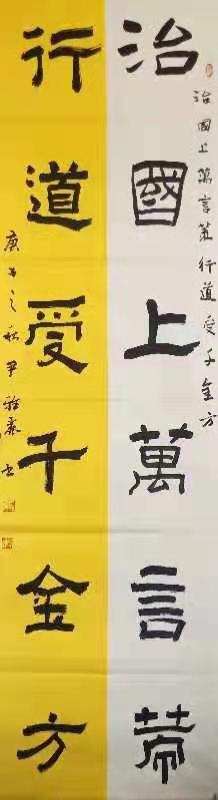 治國上萬言策行道受千金方
治國上萬言策
行道受千金方
庚子之秋尹雅森书